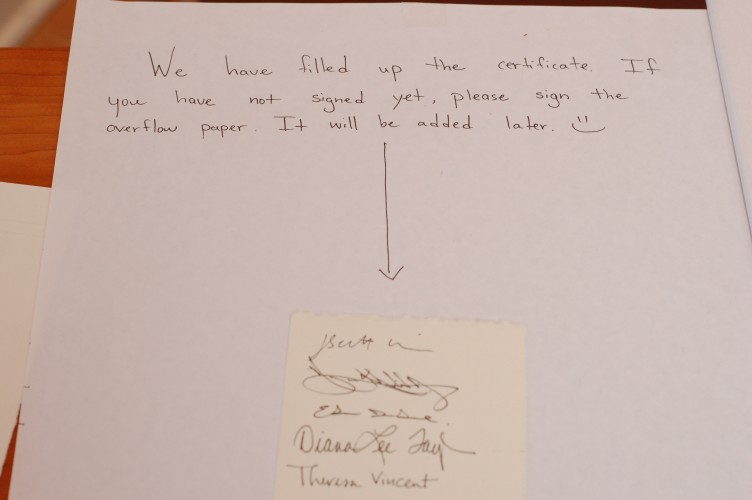 We have filled up the certificate. If
you have not signed yet, please sign the
overflow paper. It will be added later.
Diana Lee
Theresa Vincent